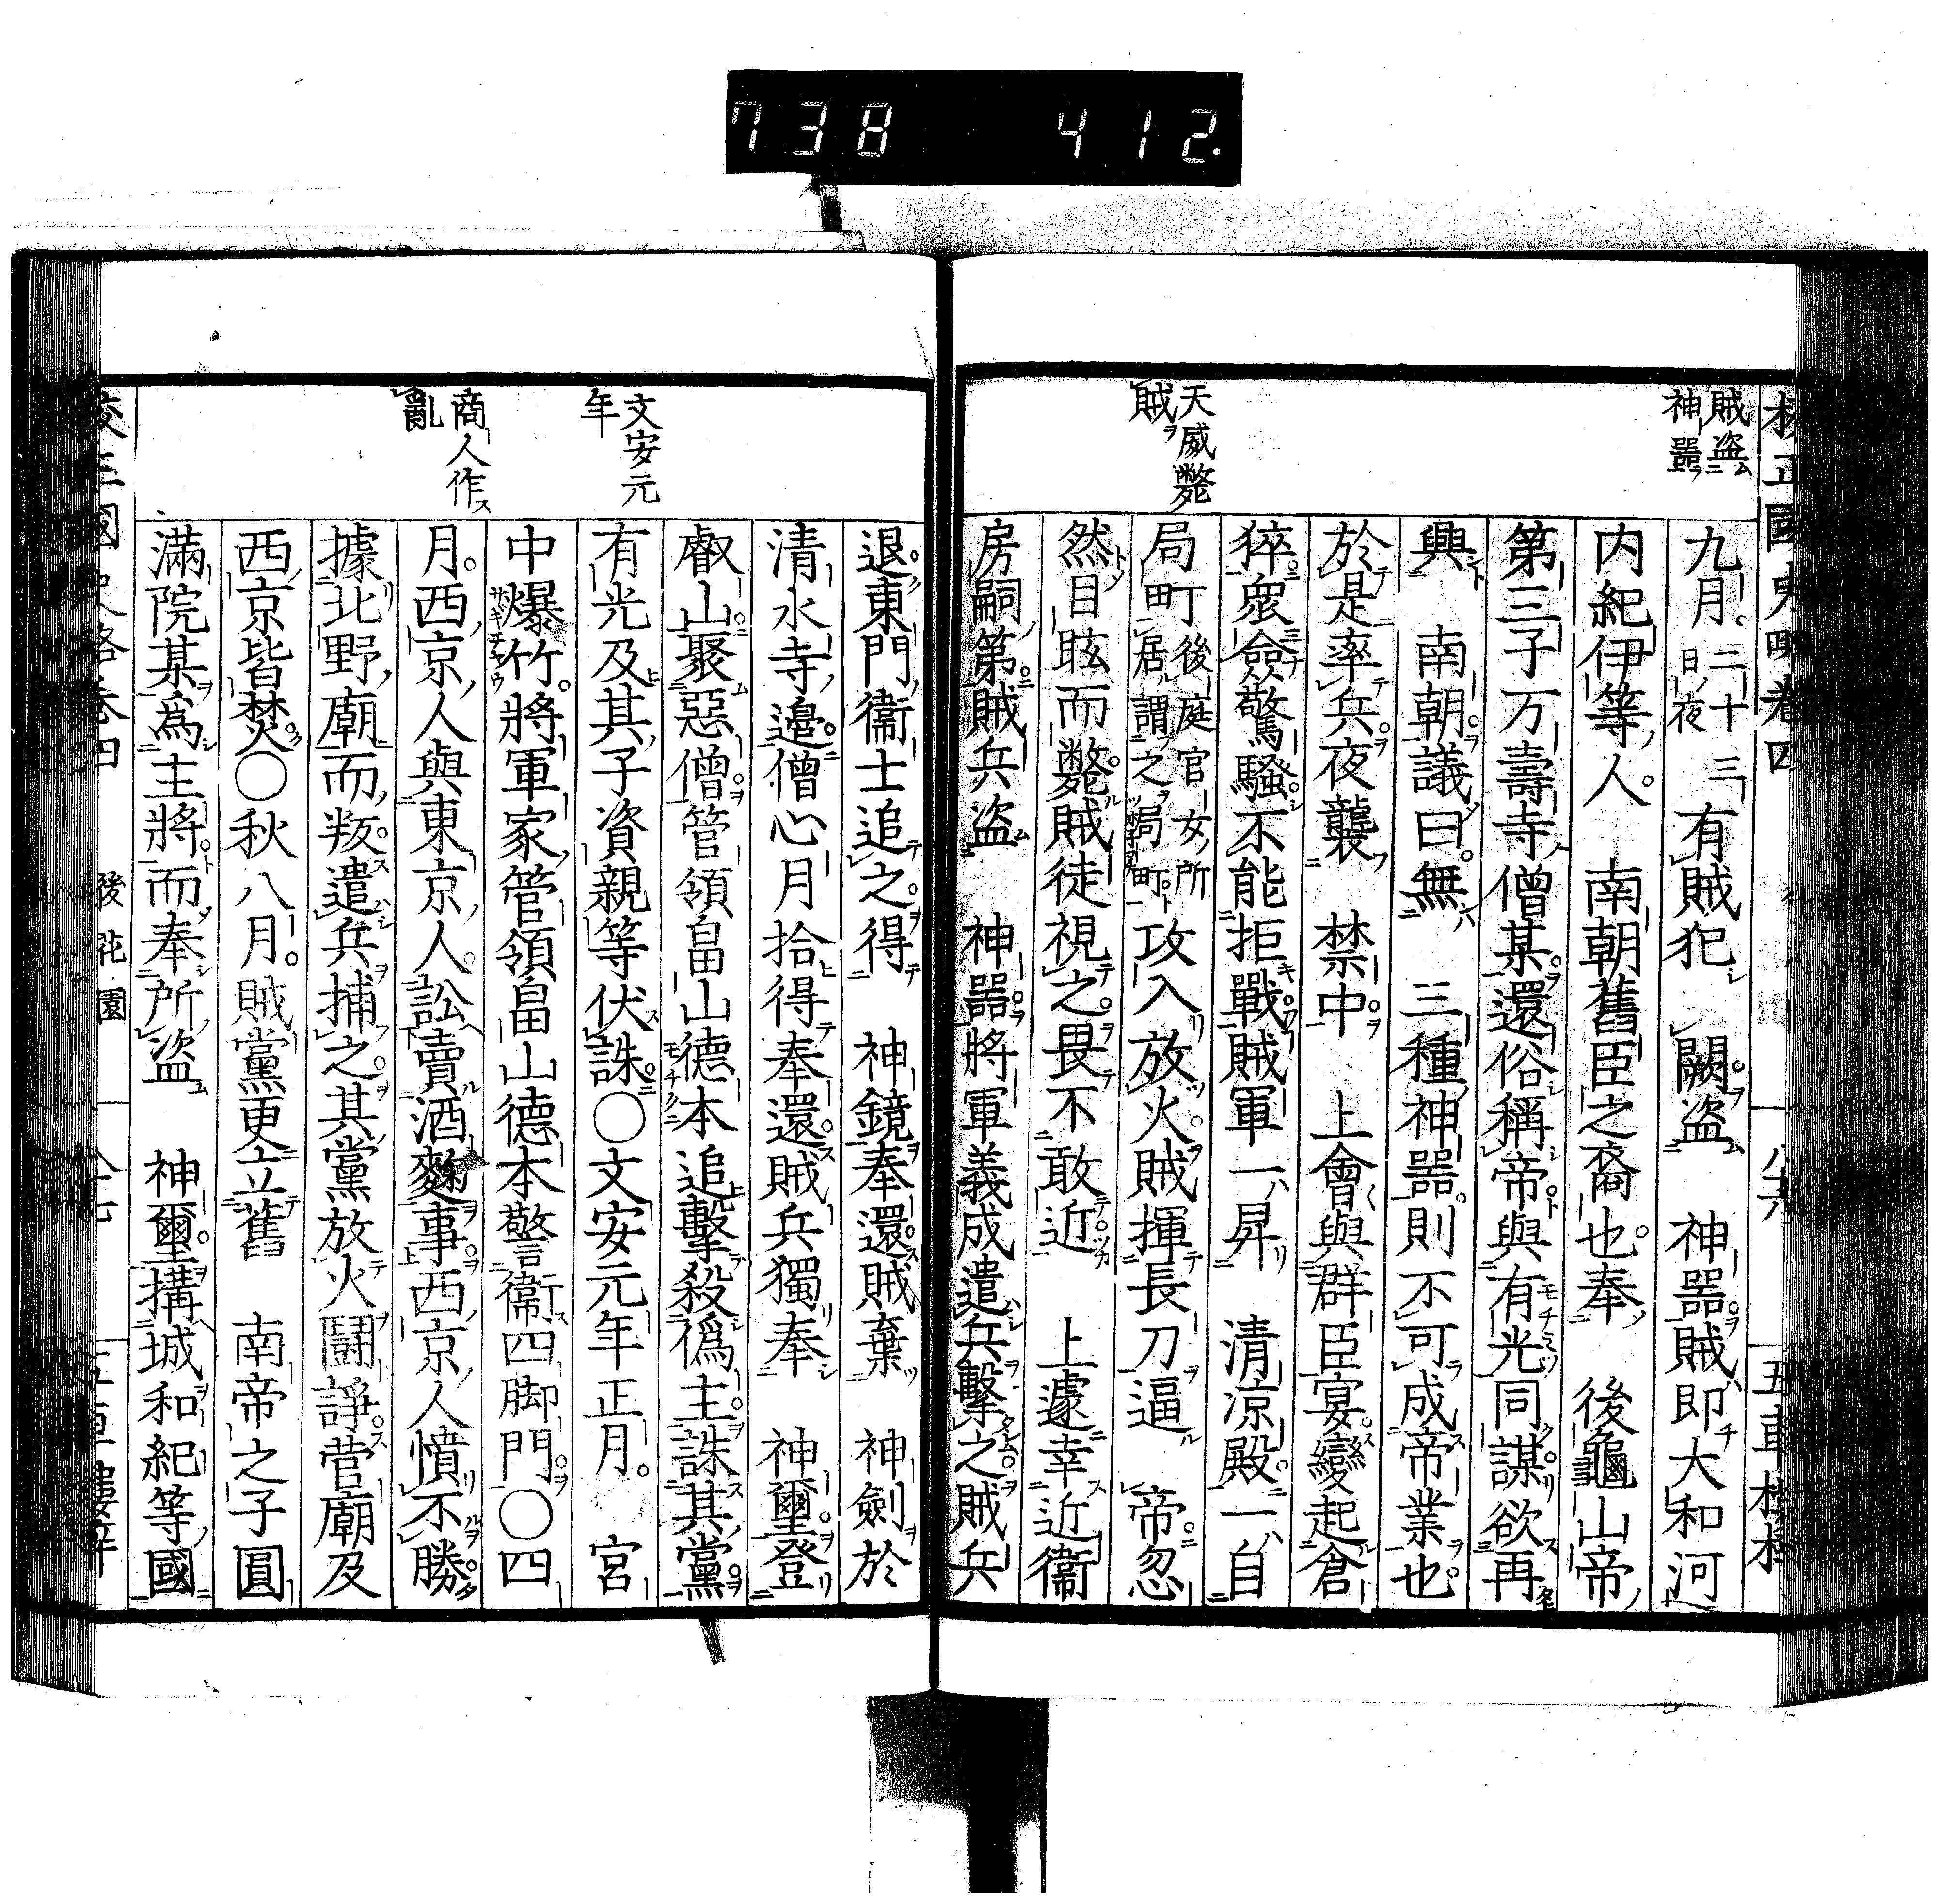 738 412.
校正國史略卷四 八十六 五車樓梓
賊盗
神器
九月。二十三日夜有賊犯 闕盗 神器賊即大和河
内紀伊等人。 南朝舊臣之裔也。奉 後龜山帝
第三子万壽寺僧某還俗稱帝與有光同謀欲再
興 南朝議曰。無 三種神器則不可成帝業也。
於是率兵夜襲 禁中 上會與群臣宴變起倉
猝衆僉驚騷不能拒戰賊軍一昇 清凉殿一自
天威斃
賊
局町後庭官女所居謂之局町攻入放火賊揮長刀逼 帝忽
然目眩而斃賊徒視之畏不敢近 上遽幸近衞
房嗣第賊兵盗 神器將軍義成遣兵擊之賊兵
退東門衞士追之得 神鏡奉還賊棄 神劍於
清水寺邉僧心月拾得奉還賊兵獨奉 神璽登
叡山聚惡僧管領畠山德本追擊殺僞主誅其黨
文安元
年
有光及其子資親等伏誅〇文安元年正月。 宮
中爆竹。將軍家管領畠山德本警衞四脚門〇四
商人作
亂
月。西京人與東京人。訟賣酒麹事西京人憤不勝
據北野廟而叛遣兵捕之其黨放火鬪諍菅廟及
西京皆焚〇秋八月。賊黨更立舊 南帝之子圓
滿院某為主將而奉所盗 神璽搆城和紀等國
校正國史略卷四 後花園 八十七 五車樓梓